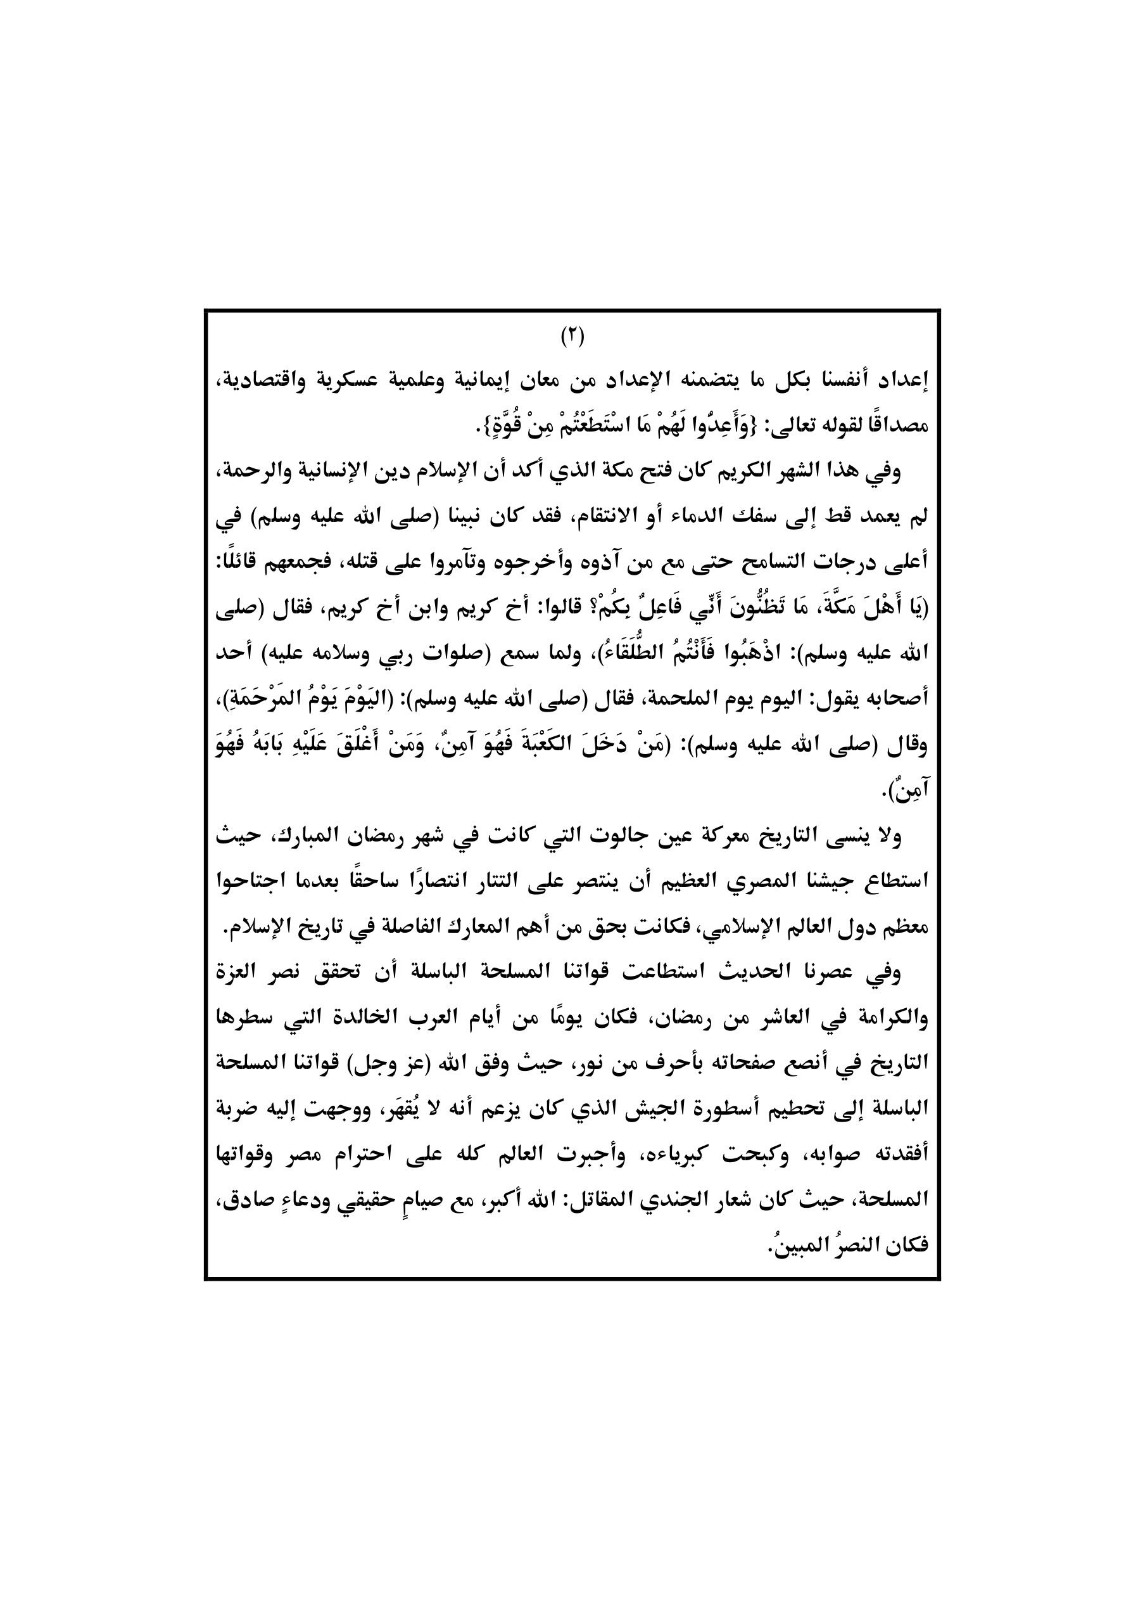 (٢)
إعداد أنفسنا بكل ما يتضمنه الإعداد من معان إيمانية وعلمية عسكرية واقتصادية،
مصداقًا لقوله تعالى: {وَأَعِدُّوا لَهُمْ مَا اسْتَطَعْتُمْ مِنْ قُوَّةٍ}.
وفي هذا الشهر الكريم كان فتح مكة الذي أكد أن الإسلام دين الإنسانية والرحمة،
لم يعمد قط إلى سفك الدماء أو الانتقام، فقد كان نبينا (صلى الله عليه وسلم) في
أعلى درجات التسامح حتى مع من آذوه وأخرجوه وتآمروا على قتله، فجمعهم قائلًا:
(يَا أَهْلَ مَكَّةَ، مَا تَظُنُّونَ أَنِّي فَاعِلٌ بِكُمْ؟ قالوا: أخ كريم وابن أخ كريم، فقال (صلى
الله عليه وسلم): اذْهَبُوا فَأَنْتُمُ الطُّلَقَاءُ)، ولما سمع (صلوات ربي وسلامه عليه) أحد
أصحابه يقول: اليوم يوم الملحمة، فقال (صلى الله عليه وسلم): (اليَوْمَ يَوْمُ المَرْحَمَةِ)،
وقال (صلى الله عليه وسلم): (مَنْ دَخَلَ الكَعْبَةَ فَهُوَ آمِنٌ، وَمَنْ أَغْلَقَ عَلَيْهِ بَابَهُ فَهُوَ
آمِنٌ).
ولا ينسى التاريخ معركة عين جالوت التي كانت في شهر رمضان المبارك، حيث
استطاع جيشنا المصري العظيم أن ينتصر على التتار انتصارًا ساحقًا بعدما اجتاحوا
معظم دول العالم الإسلامي، فكانت بحق من أهم المعارك الفاصلة في تاريخ الإسلام.
وفي عصرنا الحديث استطاعت قواتنا المسلحة الباسلة أن تحقق نصر العزة
والكرامة في العاشر من رمضان، فكان يومًا من أيام العرب الخالدة التي سطرها
التاريخ في أنصع صفحاته بأحرف من نور، حيث وفق الله (عز وجل) قواتنا المسلحة
الباسلة إلى تحطيم أسطورة الجيش الذي كان يزعم أنه لا يُقهَر، ووجهت إليه ضربة
أفقدته صوابه، وكبحت كبرياءه، وأجبرت العالم كله على احترام مصر وقواتها
المسلحة، حيث كان شعار الجندي المقاتل: الله أكبر، مع صيامٍ حقيقي ودعاءٍ صادق،
فكان النصرُ المبينُ.